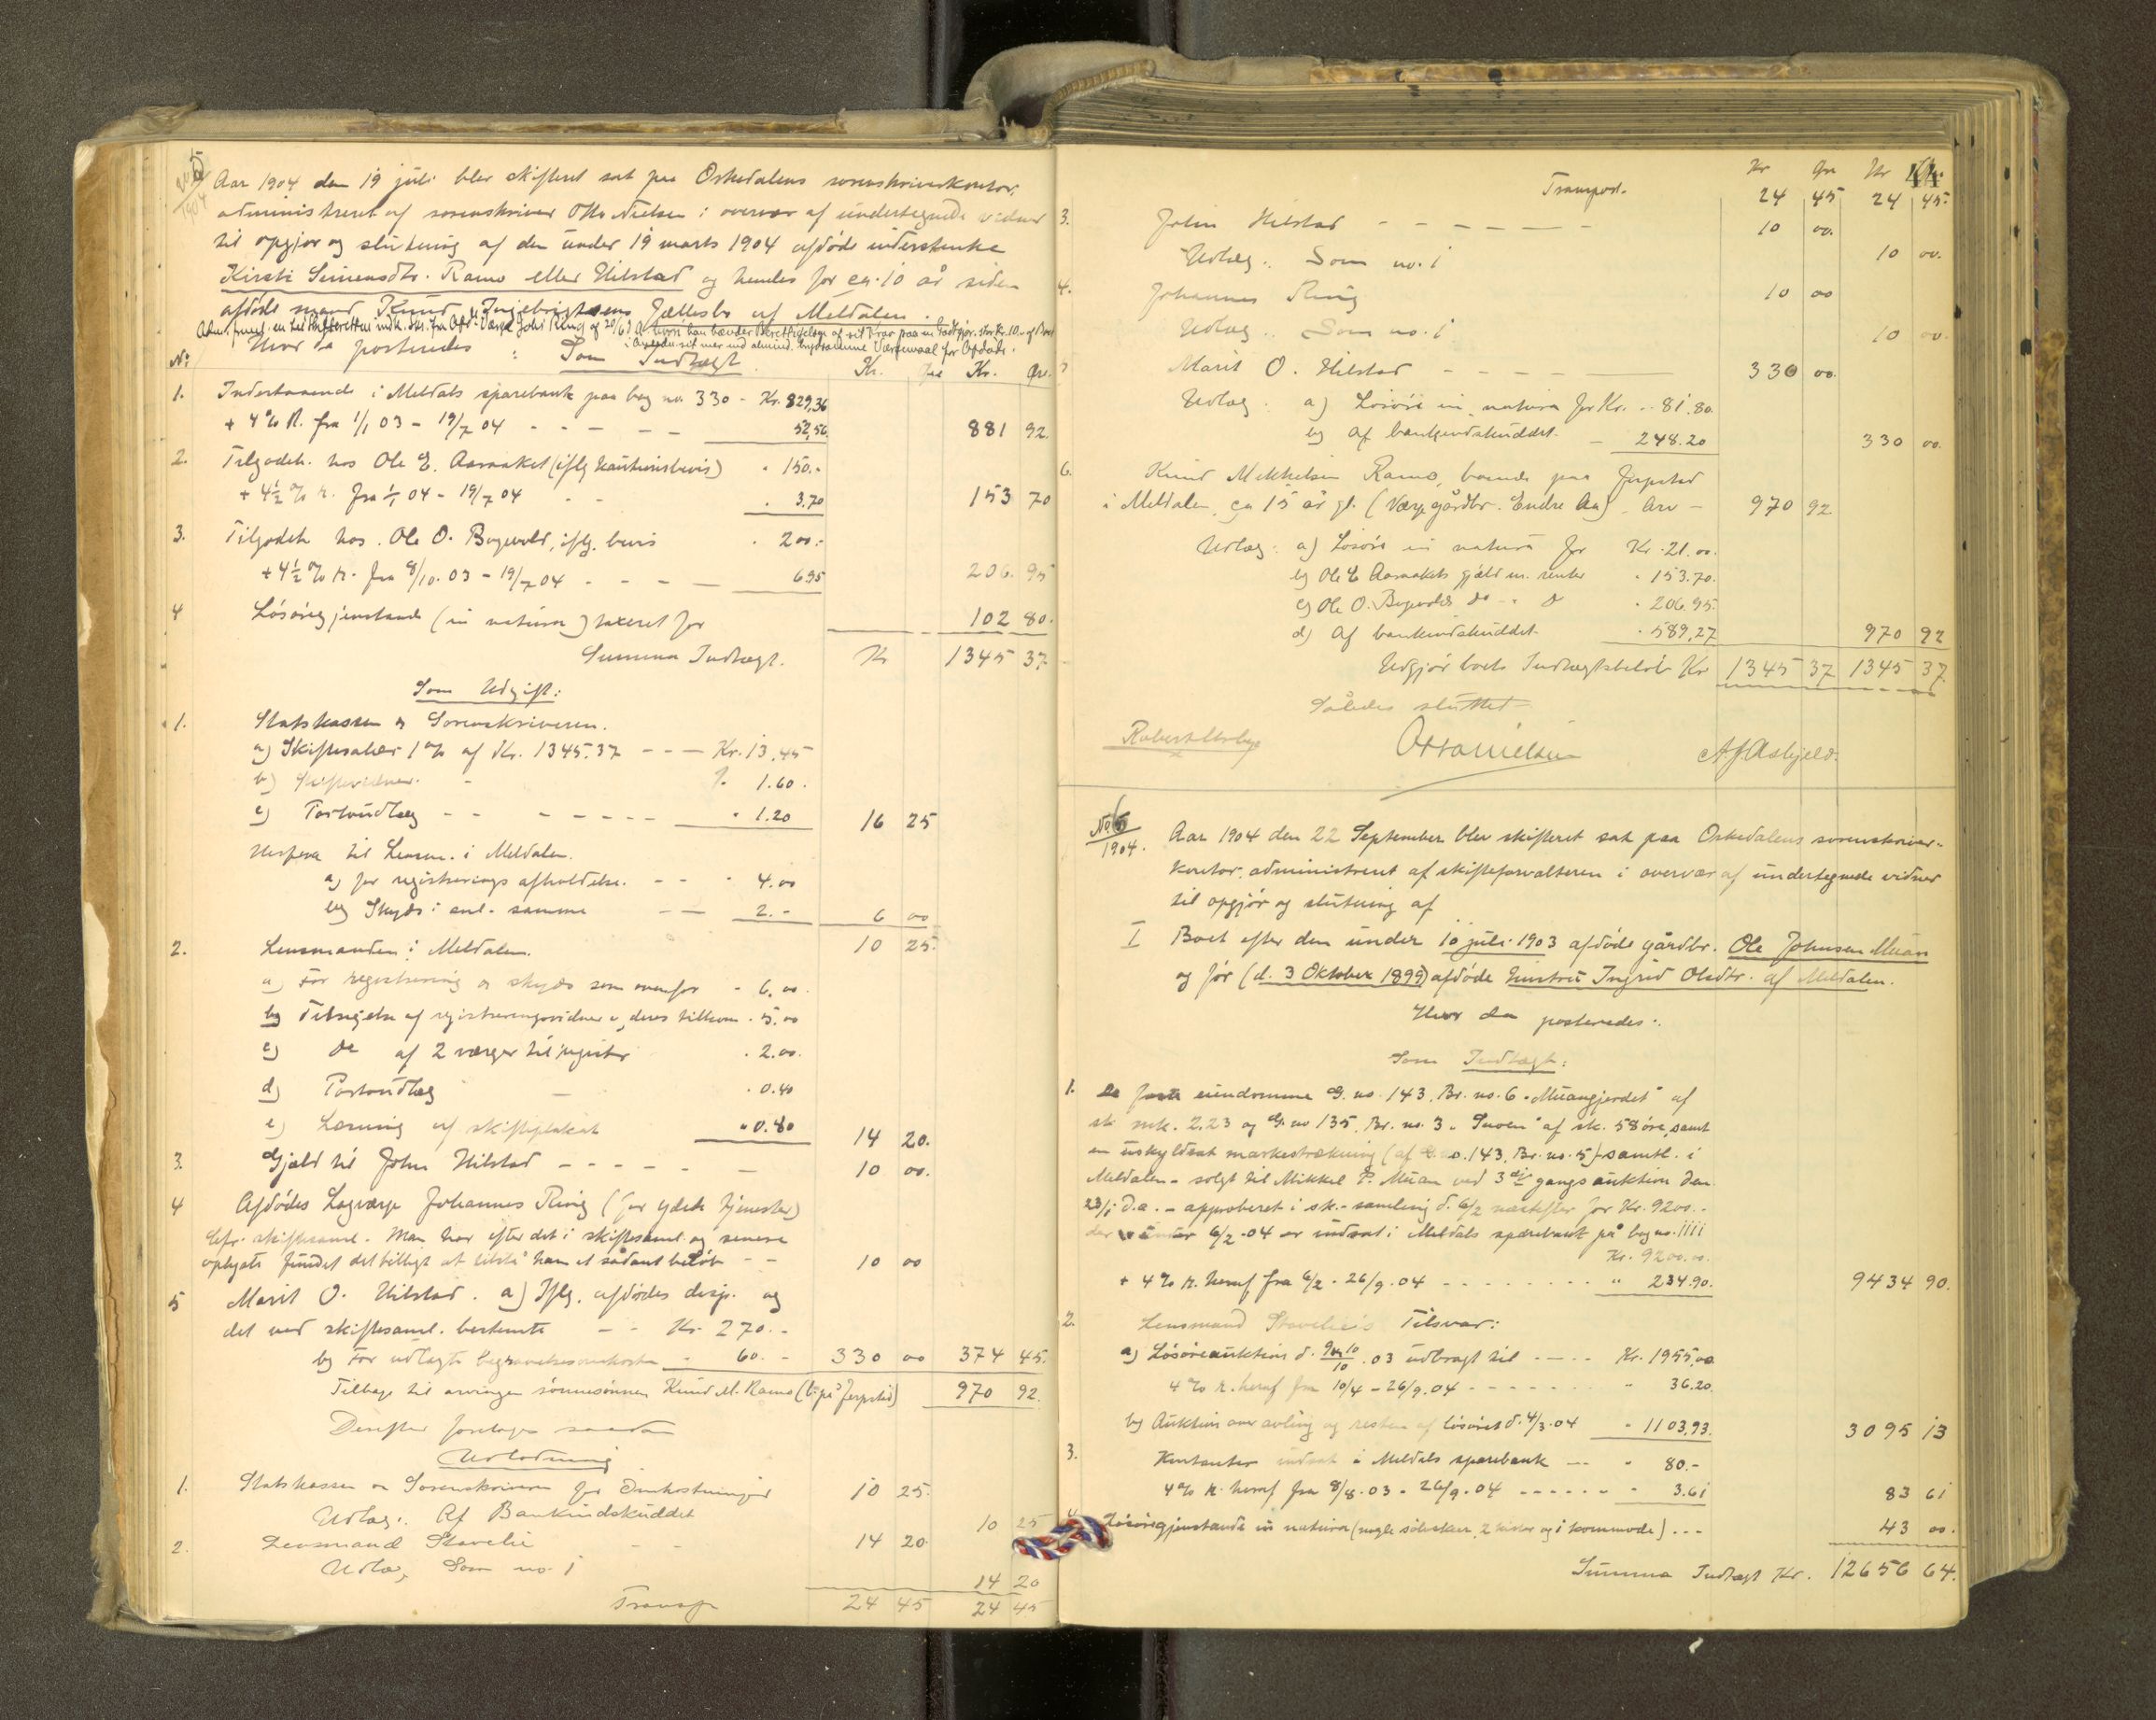 No 5
1904
Aar 1904 den 19 juli blev skifteret sat paa Orkedalens sorenskriverkontor,
administreret af sorenskriver Otto Nielsen i overvær af undertegnede vidner
til opgjør og slutning af den under 19 marts 1904 afdøde inderstenke
Kirsti Simensdtr. Ramo eller Hilstad og hendes for ca. 10 år siden
afdøde mand Knud Ingebrigtsens Fællesbo af Meldalen.
Hvor da posteredes: Som Indtægt
No Kr. Øre Kr. Øre.
1. Indestaaende i Meldals sparebank paa bog no 330 - Kr. 829,36
+ 4% R. fra 1/1 03 - 19/7 04 - - - - 52,56 881 92.
2. Tilgodeh. hos Ole E. Aamaket (iflg kautionsbevis) " 150.-
+ 4½% r. fra 1/1 04 - 19/7 04 - - " 3.70 153 70
3. Tilgodeh hos. Ole O. Bogevold, iflg. bevis " 200.-
+ 4½% r. fra 8/10. 03 - 19/7 04 - - - 6.95 206. 95
4 Løsøregjenstande (in natura) taxeret for 102 80.
Summa Indtægt. Kr 1345 37
Som Udgift:
1. Statskassen og Sorenskriveren.
a) Skiftesalær 1% af Kr. 1345.37 - - - Kr. 13,45
b) Skiftevidner. - " 1.60.
c) Portoudlæg - - - - - - - " 1.20 16 25
Herfra til Lensm. i Meldalen.
a) for registrerings afholdelse. - - " 4.00
b) Skyds i anl. samme - - 2.- 6 00
10 25.
2. Lensmanden i Meldalen.
a) For registrering og skyds som ovenfor - 6.00
b) Tilsigelse af registreringsvidner og deres tilkom. " 5.00
c) do af 2 værger til registr " 2.00.
d) Portoudlæg - " 0.40
e) Læsning af skifteplakat " 0.80 14 20.
3. Gjæld til John Hilstad - - - - - - 10 00.
4 Afdødes Lagværge Johannes Ring (for ydete tjenester)
Cfr. skiftesaml. Man har efter det i skiftesaml. og senere
oplyste fundet det billigt at tilstå ham et sådant beløb - - 10 00
5 Marit O. Hilstad. a) Iflg. afdødes disp. og
det ved skiftesaml. bestemte - - Kr. 270.-
b) For udlagte begravelsesomkostn - 60.- 330 00 374 45.
Tilbage til arvingen sønnesønnen Knud M. Ramo (b. på Jerpstad) 970 92.
Derefter foretages saadan
Udlodning
1. Statskassen og Sorenskriveren for Omkostninger 10 25.
Udlæg: Af Bankindskuddet 10 25
2. Lensmand Stavelie - - 14 20.
Udlæg, Som no. 1 14 20
Transp 24 45 24 45
44
Kr Øre Kr Øre
Transport. 24 45 24 45
3. John Hilstad - - - - - - 10 00.
Udlæg: Som no. 1 10 00.
4. Johannes Ring 10 00
Udlæg: Som no. 1 10 00.
Marit O. Hilstad - - - - 330 00.
Udlæg: a) Løsøre in natura for Kr. " 81.80.
b) af bankindskuddet. - 248.20 330 00.
6. Knud Mikkelsen Ramo, boende paa Jerpstad
i Meldalen, ca 15 år gl. (Værge gårdbr. Endre Aa) Arv - 970 92
Udlæg: a) Løsøre in natura for Kr. 21.00.
b) Ole E Aamakets gjæld m. renter " 153.70.
c) Ole O. Bogevolds do " do " 206.95.
d) Af bankindskuddet. " 589,27 970 92
Udgjør boets Indtægtsbeløb Kr 1345 37 1345 37.
Således sluttet
Otto Nielsen A J Asbjeld.
No 6
1904.
Aar 1904 den 22 September blev skifteret sat paa Orkedalens sorenskriver-
kontor, administreret af skifteforvalteren i overvær af undertegnede vidner
til opgjør og slutning af
I Boet efter den under 10 juli 1903 afdøde gårdbr. Ole Johnsen Muan
og før (d. 3 Oktober 1899) afdøde hustru Ingrid Olsdtr. af Meldalen.
Hvor da posteredes:
Som Indtægt:
1. De faste eiendomme G. no. 143, Br. no. 6 "Muangjerdet" af
sk mrk. 2.23 og G. no 135, Br. no. 3 "Svoen" af sk. 58 øre, samt
en uskyldsat markestrækning (af G.no. 143, Br. no. 5) samtl. i
Meldalen - solgt til Mikkel P. Muan ved 3die gangs auktion den
23/1 d.a. - approberet i sk.-samling d. 6/2 næstefter for Kr. 9200.-
der under 6/2-04 er indsat i Meldals sparebank på bog no. 1111
Kr. 9200.00.
+ 4% R. heraf fra 6/2 - 26/9.04 - - - - - - - - " 234.90. 9434 90.
2. Lensmand Stavelie's Tilsvar:
a) Løsøreauktion d. 9 og 10/10.03 udbragt til - - - Kr. 1955,00
4% R. heraf fra 10/4 - 26/9.04 - - - - - - - " 36.20.
b) Auktion over avling og resten af løsøret d. 4/3.04 " 1103,93. 3095 13
3. Kontanter indsat i Meldals sparebank - - " 80.-
4% R. heraf fra 8/8.03 - 26/9.04 - - - - - - " 3.61 83 61
Løsøregjenstande in natura (nogle sølvskeer, 2 kister og 1 kommode) - - - 43 00.
Summa Indtægt Kr. 12656 64.